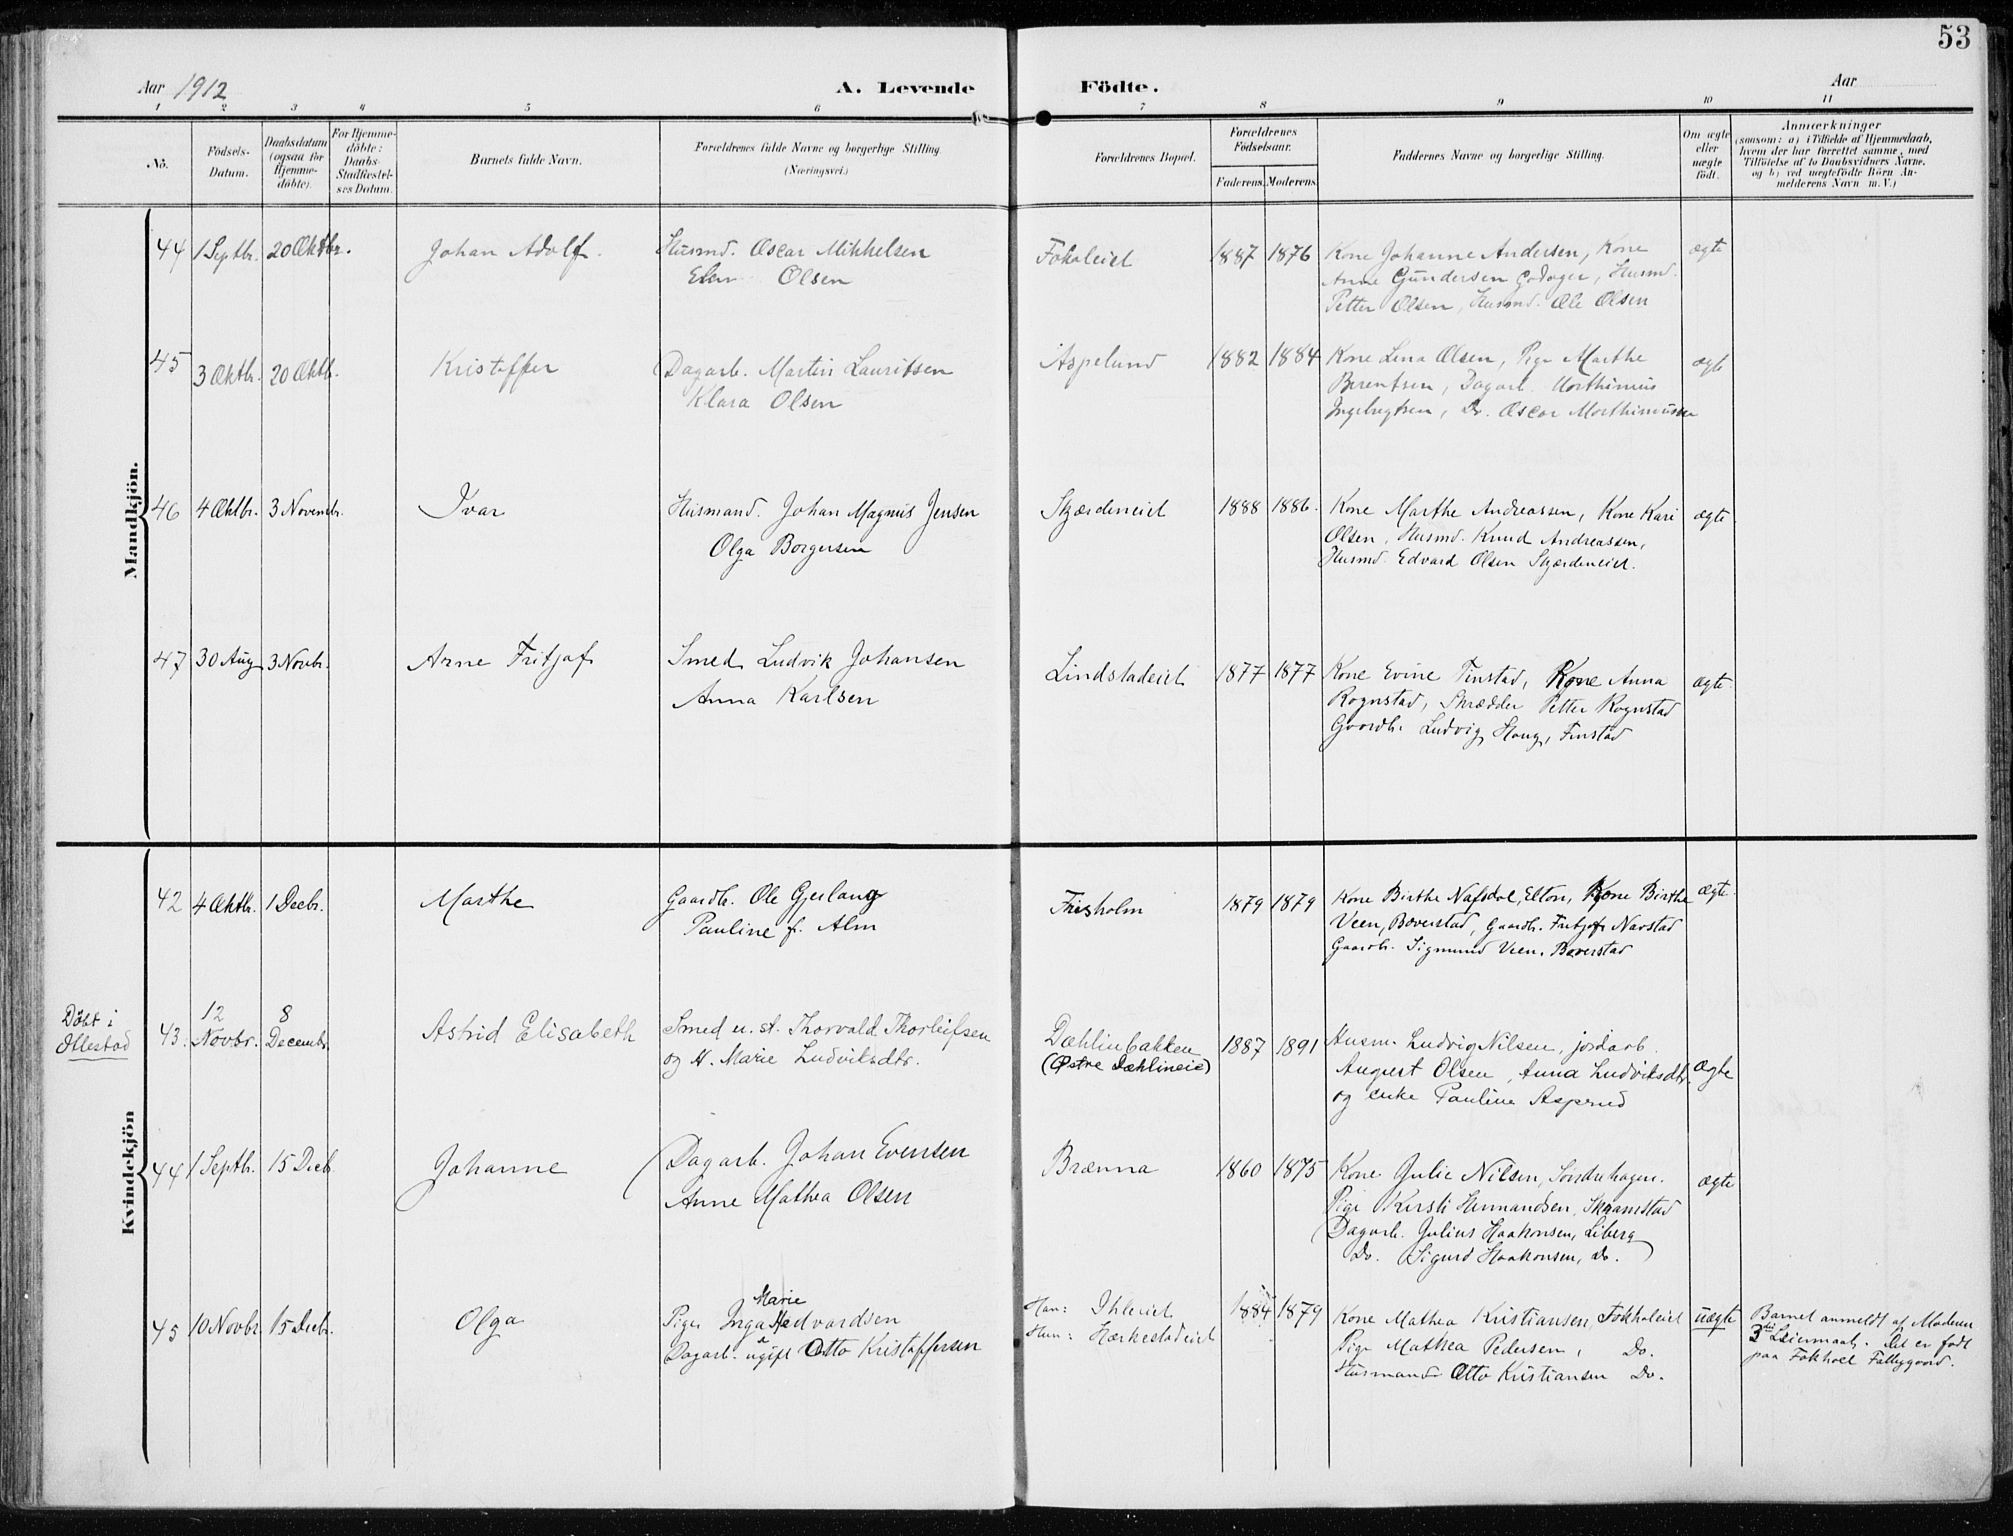 53
Aar 1912
A. Levende
Födte.
Aar
1 2 3 4 5 6 7 8 9 10 11
No.
Födsels-
Datum.
Daabsdatum
(ogsaa for
Hjemme-
döbte).
For Hjemme-
döbte:
Daabs-
Stadfæstel-
ses Datum.
Barnets fulde Navn.
Forældrenes fulde Navne og borgerlige Stilling.
(Næringsvei.)
Forældrenes Bopæl.
Forældrenes
Födselsaar.
Faderens. Moderens.
Faddernes Navne og borgerlige Stilling.
Om ægte
eller
uægte
födt.
Anmærkninger
(saasom: a) i Tilfælde af Hjemmedaab,
hvem der har forrettet samme, med
Tilföielse af to Daabsvidners Navne.
og b) ved uægtefödte Börn An-
melderens Navn m. V.)
Mandkjön.
44 1 Septbr. 20 Oktbr. Johan Adolf. Husmd. Oscar Mikkelsen
Olsen
1887 1876 Kone Johanne Andersen, Kone
Anne Gundersen, Husmd.
Petter Olsen, Husmd. Ole Olsen
ægte
45 3 Oktbr. 20 Oktb. Kristoffer Dagarb. Martin Lauritsen
Klara Olsen
Aspelund 1882 1884 Kone Lina Olsen, Pige Marthe
Berentsen, Dagarb. Morthinius
Ingebregtsen, Do. Oscar Morthinussen
ægte
46 4 Oktbr. 3 Novembr. Ivar Husmand. Johan Magnus Jensen
Olga Borgersen
Skjærdeneiet 1888 1886. Kone Marthe Andreassen, Kone Kari
Olsen, Husmd. Knud Andreassen,
Husmd. Edvard Olsen Skjærdeneiet.
ægte
47 30 Aug 3 Novbr. Arne Fritjof Smed Ludvik Johansen
Anna Karlsen
Lindstadeiet 1877 1877 Kone Evine Finstad, Kone Anna
Rognstad, Skrædder Petter Rognstad
Gaardb. Ludvig Haug, Finstad
ægte
Kvindekjön
42 4 Oktbr. 1 Decbr. Marthe Gaardb. Ole Gjerlaug
Pauline f. Alm
Frisholm 1879 1879 Kone Birthe Nafsdal, Elton, Kone Birthe
Veen, Bæverstad, Gaardb. Fritjof Narstad
Gaardb. Sigmund Veen. Bæverstad
ægte
Döbt i
Ottestad
43. 12
Novbr. 8
Decembr. Astrid Elisabeth Smed u. st. Thorvald Thorleifsen
og H. Marie Ludviksdtr.
Dæhlinbakken
(Østre Dæhlineie)
1887 1891 Husm. Ludvig Nilsen, jordarb.
August Olsen, Anna Ludviksdtr.
og enke Pauline Asperud
ægte
44 1 Septbr. 15 Decb. Johanne Dagarb. Johan Evensen
Anne Mathea Olsen
Brænna 1860 1875 Kone Julie Nilsen, Søndrehagen.
Pige Kersti Hermandsen, Skramstad
Dagarb. Julius Haakonsen, Liberg
Do. Sigurd Haakonsen, Do.
ægte
45 10 Novbr. 15 Decbr. Olga Pige Inga Marie Hedvardsen
Dagarb. ugift Otto Kristoffersen
Han: Ihleiet
Hun: Hærkestadeiet
1884 1879 Kone Mathea Kristiansen, Fokholeiet
Pige Mathea Pedersen, Do.
Husmand Otto Kristiansen Do.
uægte
Barnet anmeldt af Moderen
3die Leiermaal. Det er født
paa Fokhoel Fattiggaard.